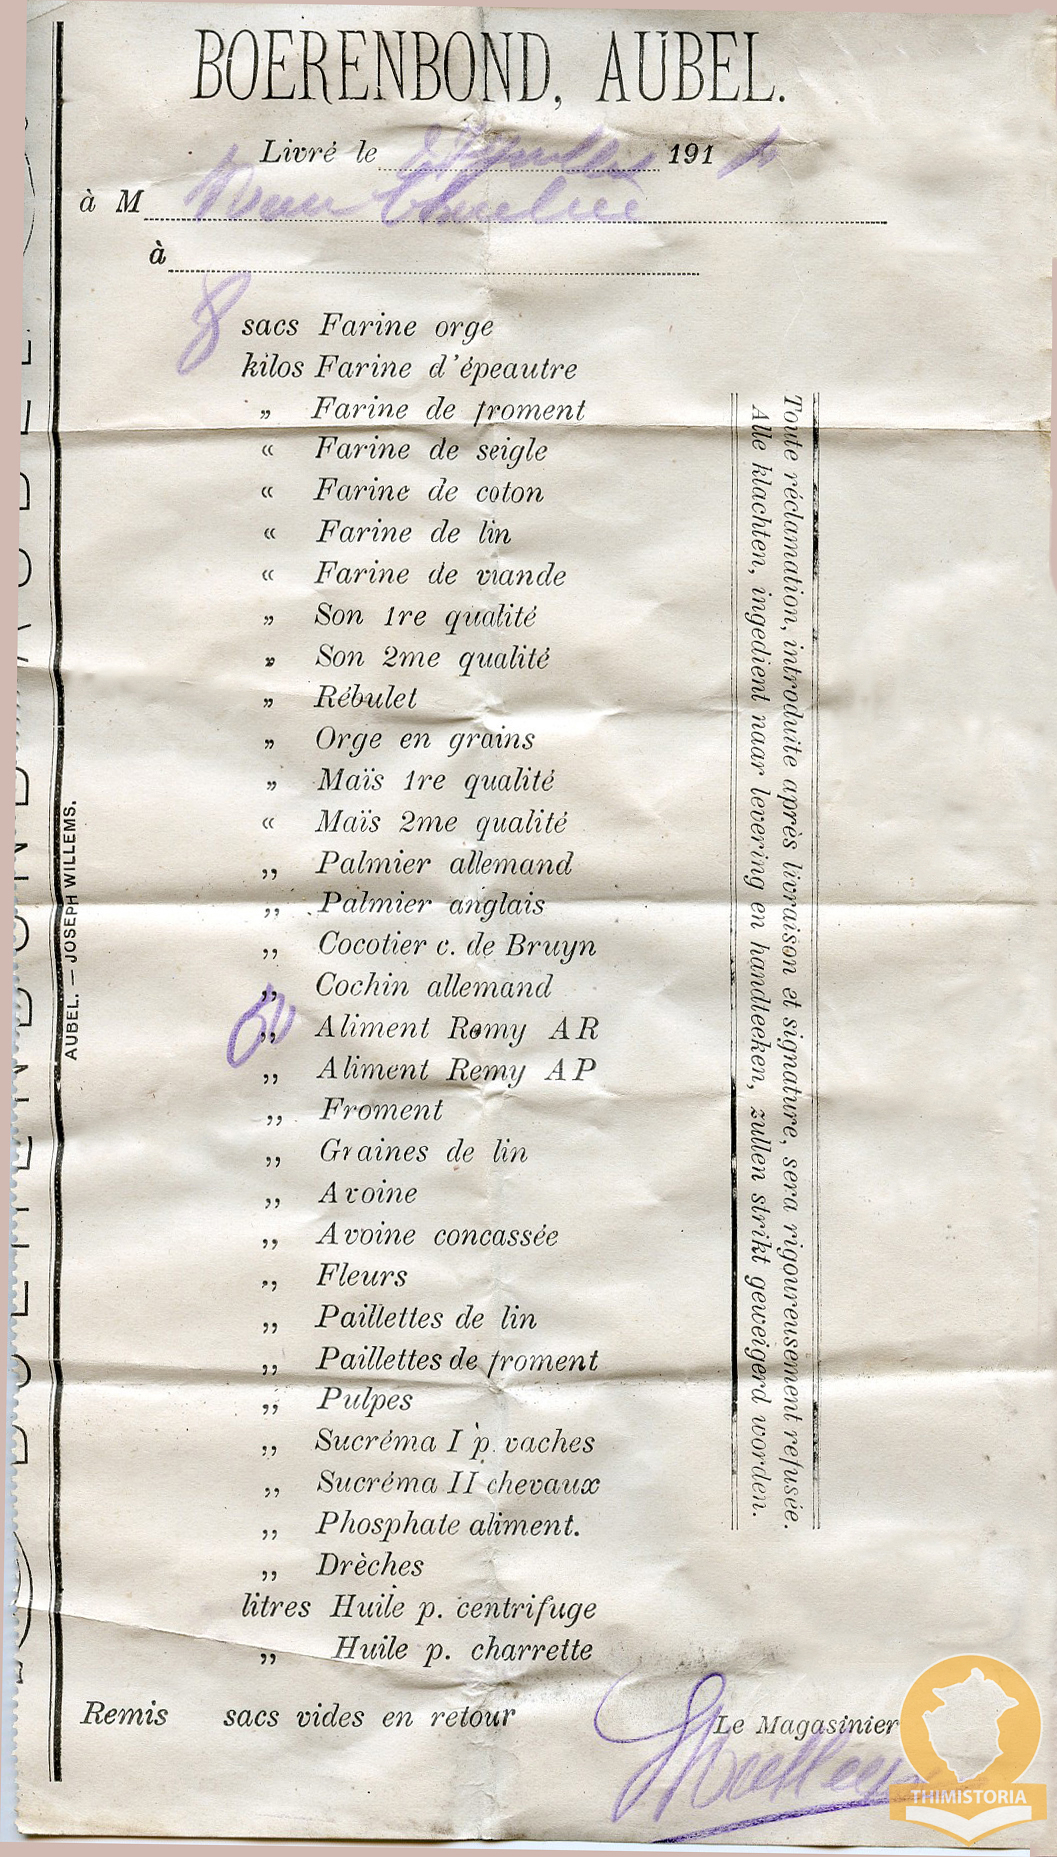 BOERENBOND, AUBEL.
Livré le 191
à M
à
8 sacs Farine orge
kilos Farine d'épeautre
„ Farine de froment
« Farine de seigle
« Farine de coton
« Farine de lin
« Farine de viande
„ Son 1re qualité
„ Son 2me qualité
„ Rébulet
„ Orge en grains
„ Maïs 1re qualité
« Maïs 2me qualité
,, Palmier allemand
,, Palmier anglais
,, Cocotier c. de Bruyn
,, Cochin allemand
,, Aliment Remy AR
,, Aliment Remy AP
,, Froment
,, Graines de lin
,, Avoine
,, Avoine concassée
,, Fleurs
,, Paillettes de lin
,, Paillettes de froment
,, Pulpes
,, Sucréma I p. vaches
,, Sucréma II chevaux
,, Phosphate aliment.
,, Drèches
litres Huile p. centrifuge
„ Huile p. charrette
Remis sacs vides en retour
Le Magasinier
Toute réclamation, introduite après livraison et signature, sera rigoureusement refusée.
Alle klachten, ingedient naar levering en handteeken, zullen strikt geweigerd worden.
AUBEL. — JOSEPH WILLEMS.
THIMISTORIA